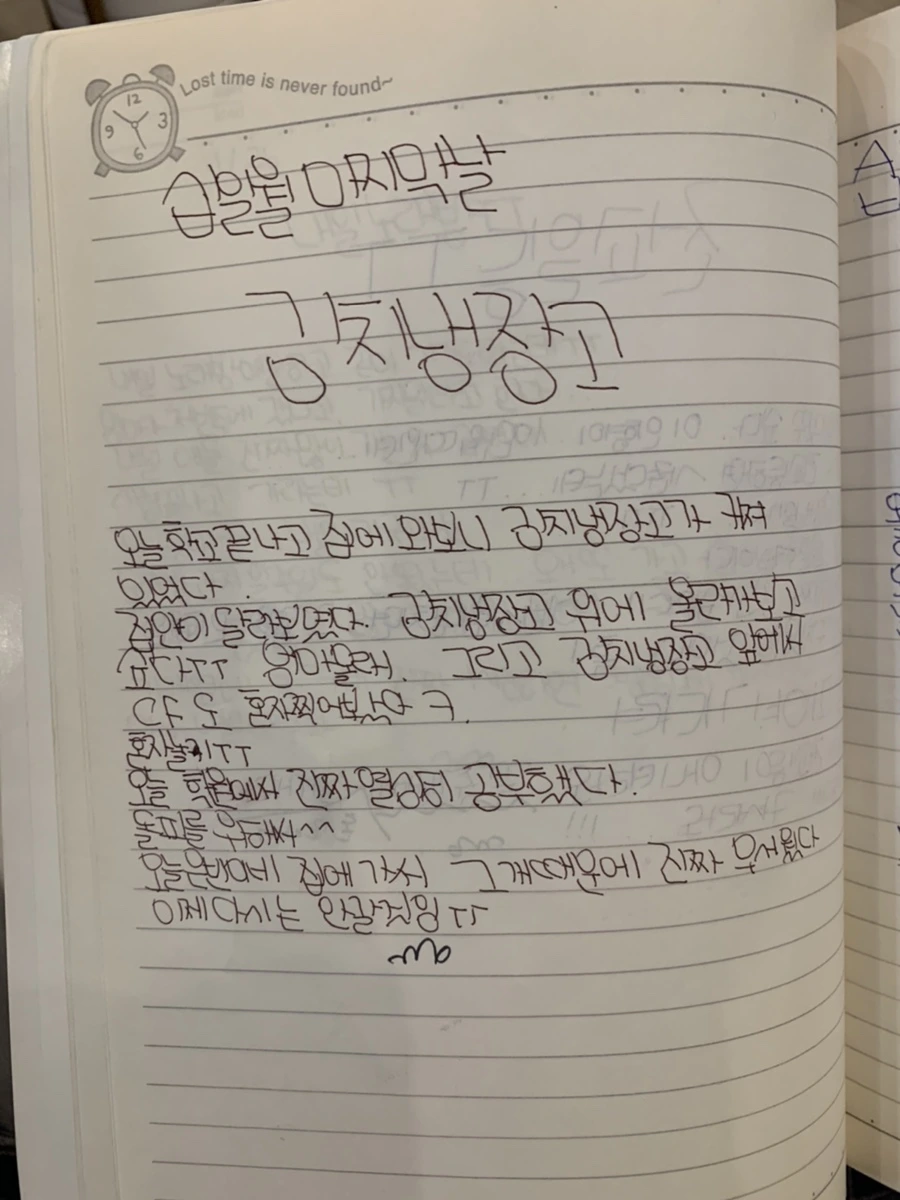 Lost time is never found~
12
9 3
6
십일월 마지막날
김치냉장고
오늘 학교끝나고 집에와보니 김치냉장고가 켜져
있었다.
집안이 달라보였다. 김치냉장고 위에 올라가보고
싶다ㅜㅜ 엄마몰래. 그리고 김치냉장고 앞에서
도 혼자찍어봤다 ㅋ.
혼자놀기ㅜㅜ
오늘 학원에서 진짜열심히 공부했다.
위해서^^
집에가서 그개때문에 진짜 무서웠다
이제다시는 안갈것임ㅜㅜ